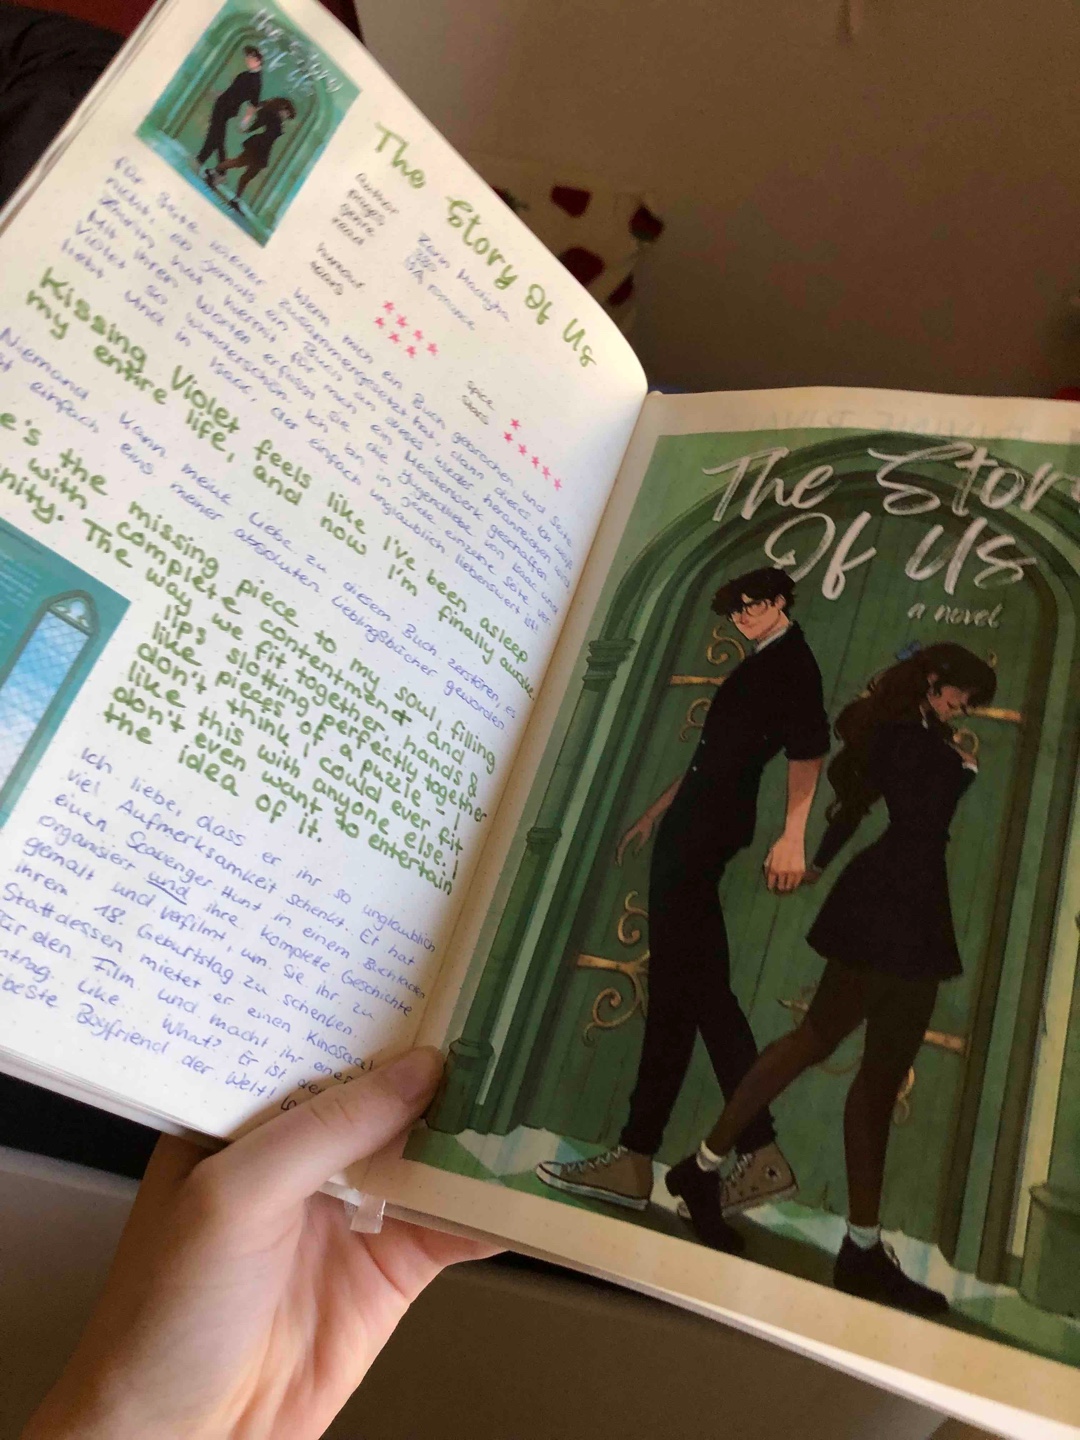 The Story
Of Us
The Story Of Us
author
pages
genre
read
YA romance
humour
tears
spice
stars
Wenn mich ein Buch gebrochen und Seite
für Seite wieder zusammengesetzt hat, dann dieses. Ich weiß
nicht, ob jemals ein Buch für mich an dieses wieder heranreichen wird.
hat hiermit ein Meisterwerk geschaffen
Mit ihren Worten erfasst sie die Jugendliebe von Isaac und
Violet so wunderschön. Ich bin in jede einzelne Seite ver-
liebt und in Isaac, der einfach unglaublich liebenswert ist!
Kissing Violet feels like I've been asleep
my entire life, and now I'm finally awake.
Niemand kann meine Liebe zu diesem Buch zerstören, es
ist einfach eins meiner absoluten Lieblingsbücher geworden
e's the missing piece to my soul, filling
s with complete contentment and
nity. The way we fit together, hands &
lips slotting perfectly together
like pieces of a puzzle - I
don't think I could ever fit
like this with anyone else. I
don't even want to entertain
the idea of it.
Ich liebe, dass er ihr so unglaublich
viel Aufmerksamkeit schenkt. Er hat
einen Scavenger Hunt in einem Buchladen
organisiert und ihre komplette Geschichte
gemalt und verfilmt, um sie ihr zu
ihrem 18. Geburtstag zu schenken.
Stattdessen mietet er einen Kinosaal
für den Film und macht ihr einen
ntrag. Like.. What? Er ist der
beste Boyfriend der Welt!
The Stor
Of Us
a novel